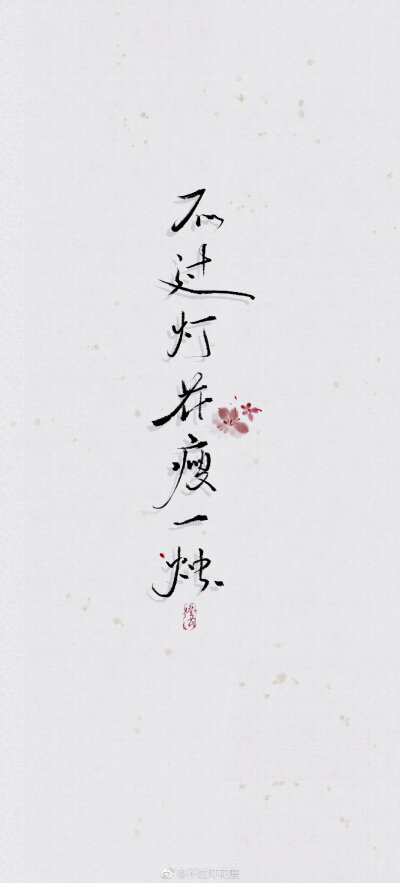 不过灯花瘦一烛
@不过灯花瘦